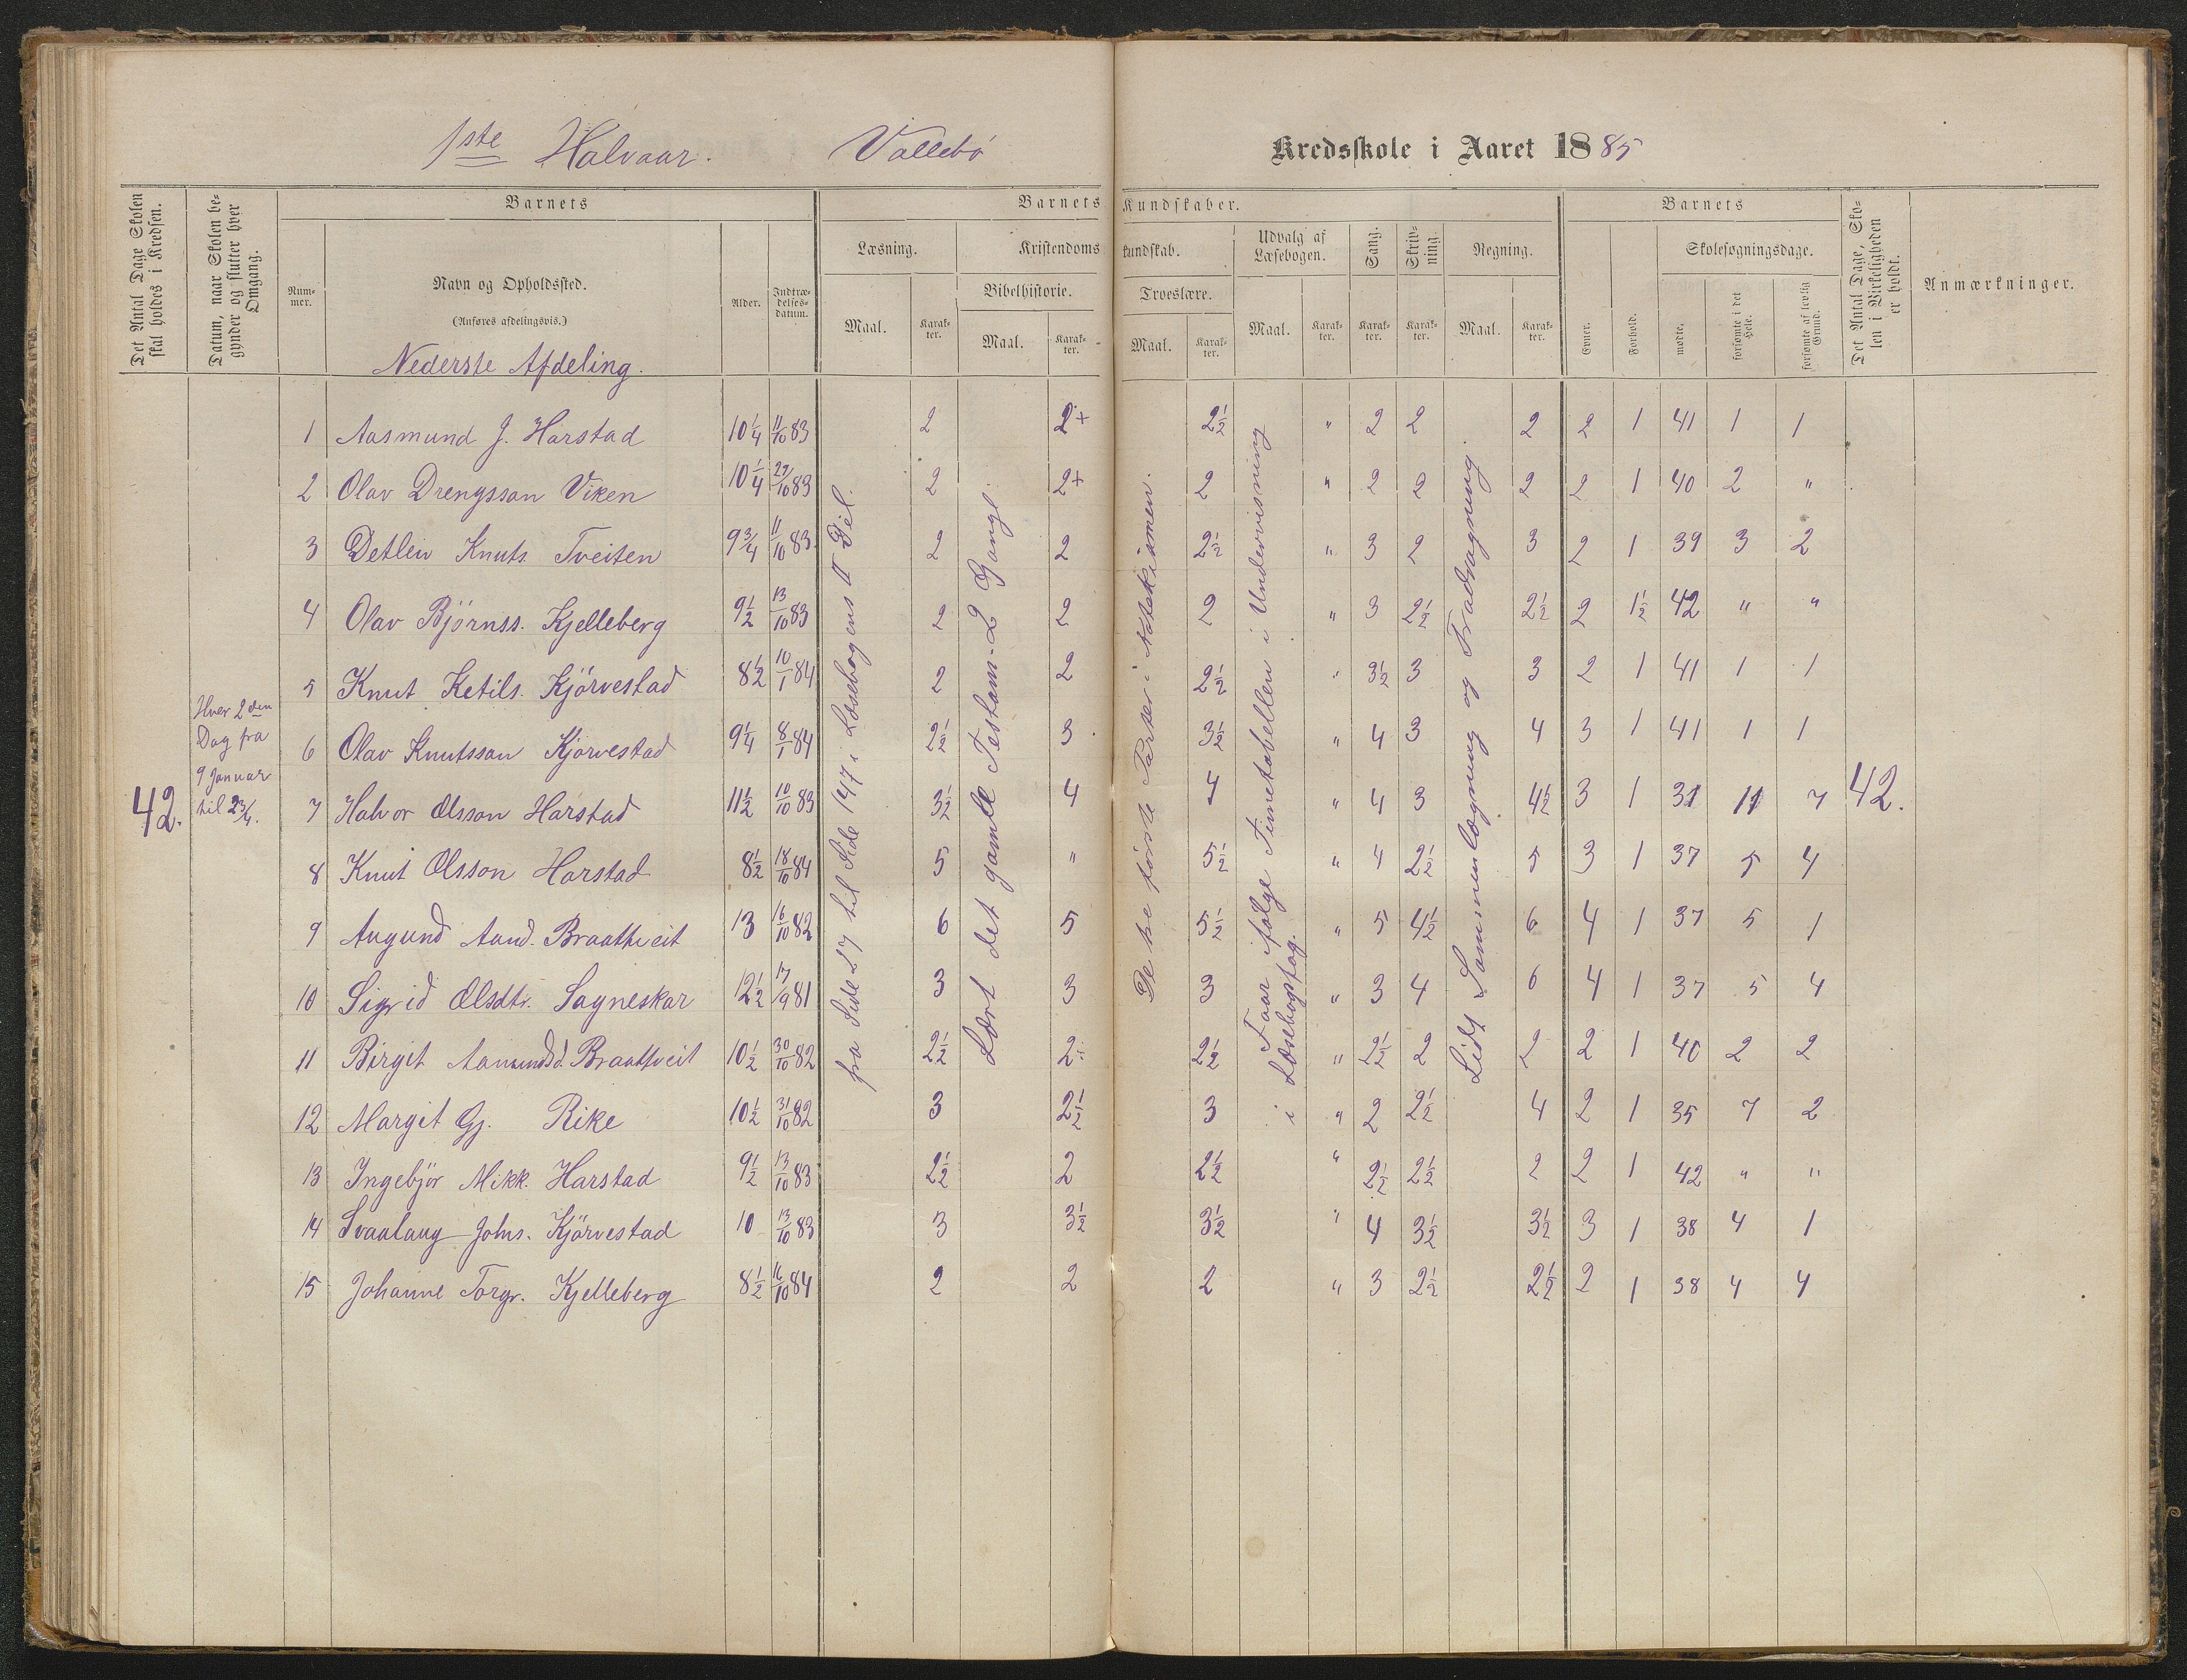 1ste Halvaar. Vallebø Kredsskole i Aaret 1885
Det Antal Dage Skolen skal holdes i Kredsen.
Datum, naar Skolen begynder og slutter hver Omgang.
Barnets
Nummer.
Navn og Opholdssted.
(Anføres afdelingsvis.)
Nederste Afdeling.
Alder.
Indtrædelsesdatum.
Barnets Kundskaber.
Læsning.
Maal.
Karakter.
Kristendomskundskab.
Bibelhistorie.
Maal.
Karakter.
Troeslære.
Maal.
Karakter.
Udvalg af Læsebogen.
Maal.
Karakter.
Sang.
Karakter.
Skrivning.
Karakter.
Regning.
Maal.
Karakter.
Barnets
Evner.
Forhold.
Skolesøgningsdage.
mødte.
forsømte i det Hele.
forsømte af lovlig Grund.
Det Antal Dage, Skolen i Virkeligheden er holdt.
Anmærkninger.
42.
Hver 2den
Dag fra
9 Januar
til 23/4.
fra Side 27 til Side 147 i Læsebogens II Del.
Lært det gamle Testam- 2 Gange.
De tre første Parter i Katekismen.
Faar ifølge Timetabellen i Undervisning
i Læsebogsfag.
Lidt Sammenlægning og Fradragning.
1 Aasmund J. Harstad 10 1/4 11/10 83 2 2+ 2 1/2 " 2 2 2 2 1 41 1 1
2 Olav Drengsson Viken 10 1/4 22/10 83 2 2+ 2 " 2 2 2 2 1 40 2 "
3 Detlev Knuts. Tveiten 9 3/4 11/10 83 2 2 2 1/2 " 3 2 3 2 1 39 3 2
4 Olav Bjørnss. Kjelleberg 9 1/2 13/10 83 2 2 2 " 3 2 1/2 2 1/2 2 1 1/2 42 " "
5 Knut Ketils. Kjörvestad 8 1/2 10/1 84 2 2 2 1/2 " 3 1/2 3 3 2 1 41 1 1
6 Olav Knutsson Kjörvestad 9 1/4 8/1 84 2 1/2 3 3 1/2 " 4 3 4 3 1 41 1 1
7 Halvor Olsson Harstad 11 1/2 10/10 83 3 1/2 4 4 " 4 3 4 1/2 3 1 31 11 7 42.
8 Knut Olsson Harstad 8 1/2 18/10 84 5 " 5 1/2 " 4 2 1/2 5 3 1 37 5 4
9 Augund Aand. Braattveit 13 16/10 82 6 5 5 1/2 " 5 4 1/2 6 4 1 37 5 1
10 Sigrid Olsdtr. Sagneskar 12 1/2 17/9 81 3 3 3 " 3 4 6 4 1 37 5 4
11 Birgit Aamundsd. Braattveit 10 1/2 30/10 82 2 1/2 2 2 1/2 " 2 1/2 2 2 2 1 40 2 2
12 Margit Gj. Rike 10 1/2 31/10 82 3 2 1/2 3 " 2 2 1/2 4 2 1 35 7 2
13 Ingebjör Mikk. Harstad 9 1/2 13/10 83 2 1/2 2 2 1/2 " 2 1/2 2 1/2 2 2 1 42 " "
14 Svaalaug Johs. Kjörvestad 10 13/10 83 3 3 1/2 3 1/2 " 4 3 1/2 3 1/2 3 1 38 4 1
15 Johanne Torgr. Kjelleberg 8 1/2 16/10 84 2 2 2 " 3 2 1/2 2 1/2 2 1 38 4 4